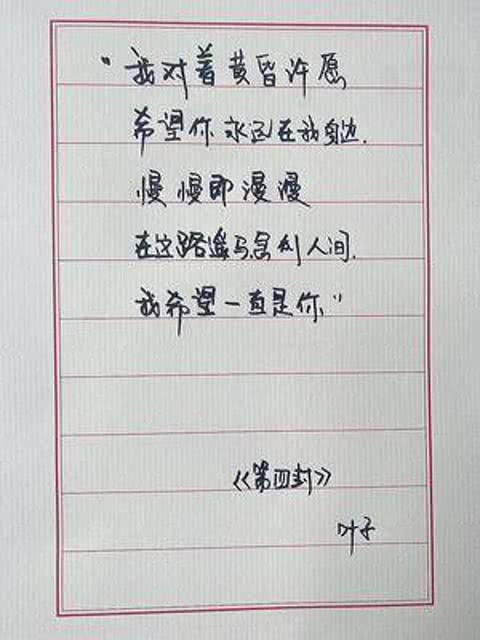 “我对着黄昏许愿
希望你永远在我身边.
慢慢即漫漫
在这路遥马急的人间.
我希望一直是你”
《第四封》
叶子